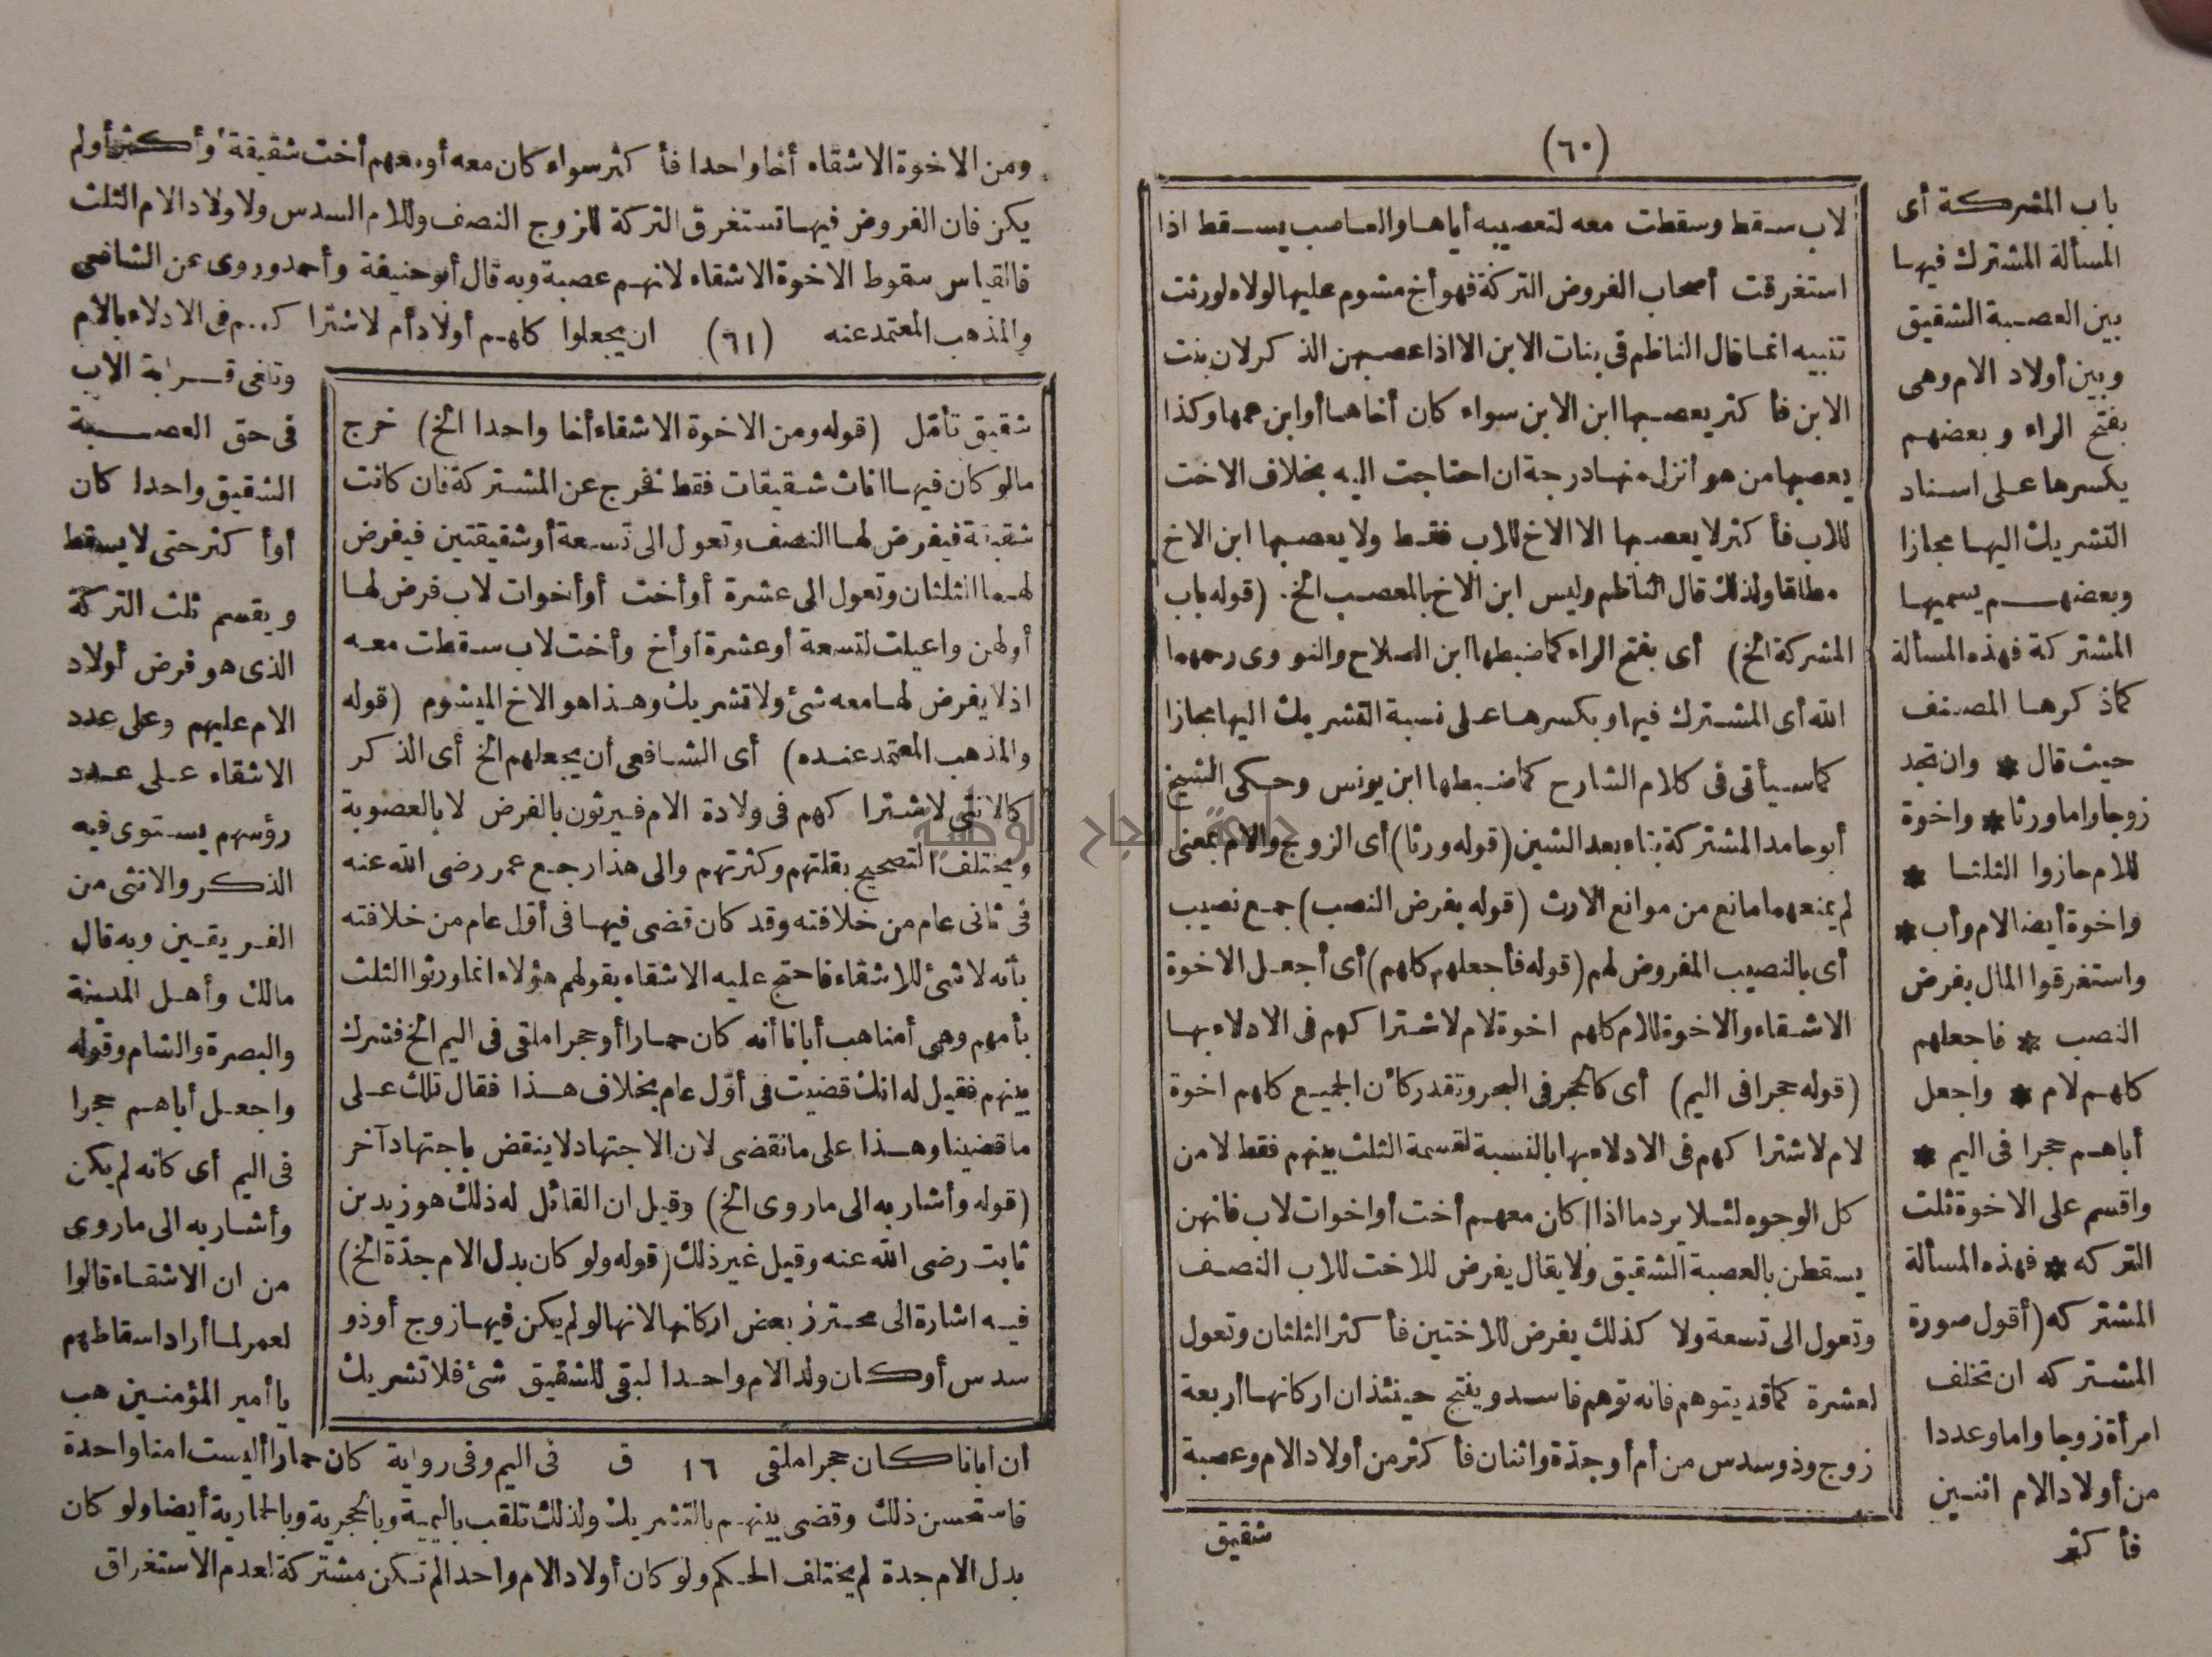 (٦٠)
باب المشركة أى
المسألة المشترك فيها
بين العصبة الشقيق
وبين أولاد الام وهى
بفتح الراء وبعضهم
يكسرها على اسناد
التشريك اليها مجازا
وبعضهم يسميها
المشتركة فهذه المسألة
كما ذكرها المصنف
حيث قال * وان تجد
زوجا واما ورثا * واخوة
للام حازوا الثلثا *
واخوة أيضا لام وأب *
واستغرقوا المال بفرض
النصب * فاجعلهم
كلهم لام * واجعل
أباهم حجرا فى اليم *
واقسم على الاخوة ثلث
التركه * فهذه المسألة
المشتركه (أقول صورة
المشتركه ان تخلف
امرأة زوجا واما وعددا
من أولاد الام اثنين
فأكثر
لاب سقط وسقطت معه لتعصيبه أياها والعاصب يسقط اذا
استغرقت أصحاب الفروض التركة فهو أخ مشوم عليها لولاه لورثت
تنبيه انما قال الناظم فى بنات الابن الا اذا عصبهن الذكر لان بنت
الابن فأكثر يعصبها ابن الابن سواء كان أخاها أو ابن عمها وكذا
يعصبها من هو أنزل منها درجة ان احتاجت اليه بخلاف الاخت
للاب فأكثر لا يعصبها الا الاخ للاب فقط ولا يعصبها ابن الاخ
مطلقا ولذلك قال الناظم وليس ابن الاخ بالمعصب الخ. (قوله باب
المشركة الخ) أى بفتح الراء كما ضبطها ابن الصلاح والنووى رحمهما
الله أى المشترك فيها وبكسرها على نسبة التشريك اليها مجازا
كما سيأتى فى كلام الشارح كما ضبطها ابن يونس وحكى الشيخ
أبو حامد المشتركة بتاء بعد الشين (قوله ورثا) أى الزوج والام بمعنى
لم يمنعهما مانع من موانع الارث (قوله بفرض النصب) جمع نصيب
أى بالنصيب المفروض لهم (قوله فأجعلهم كلهم) أى أجعل الاخوة
الاشقاء والاخوة للام كلهم اخوة لام لاشتراكهم فى الادلاء بها
(قوله حجرا فى اليم) أى كالحجر فى البحر وتقدر كأن الجميع كلهم اخوة
لام لاشتراكهم فى الادلاء بها بالنسبة لقسمة الثلث بينهم فقط لا من
كل الوجوه لئلا يرد ما اذا كان معهم أخت أو اخوات لاب فانهن
يسقطن بالعصبة الشقيق ولا يقال يفرض للاخت للاب النصف
وتعول الى تسعة ولا كذلك يفرض للاختين فأكثر الثلثان وتعول
لعشرة كما قد يتوهم فانه توهم فاسد وينتج حينئذ ان اركانها أربعة
زوج وذو سدس من أم أو جدة واثنان فأكثر من أولاد الام وعصبة
شقيق
ومن الاخوة الاشقاء أخا واحدا فأكثر سواء كان معه أو معهم أخت شقيقة أو أكثر أو لم
يكن فان الفروض فيها تستغرق التركة للزوج النصف وللام السدس ولاولاد الام الثلث
فالقياس سقوط الاخوة الاشقاء لانهم عصبة وبه قال أبو حنيفة وأحمد وروى عن الشافعى
والمذهب المعتمد عنه (٦١) ان يجعلوا كلهم أولاد أم لاشتراكهم فى الادلاء بالام
وتلغى قرابة الاب
فى حق العصبة
الشقيق واحدا كان
أو أكثر حتى لا يسقط
ويقسم ثلث التركة
الذى هو فرض أولاد
الام عليهم وعلى عدد
الاشقاء على عدد
رؤسهم يستوى فيه
الذكر والانثى من
الفريقين وبه قال
مالك وأهل المدينة
والبصرة والشام وقوله
واجعل أباهم حجرا
فى اليم أى كانه لم يكن
وأشار به الى ما روى
من ان الاشقاء قالوا
لعمر لما أراد اسقاطهم
يا أمير المؤمنين هب
شقيق تأمل (قوله ومن الاخوة الاشقاء أخا واحدا الخ) خرج
مالو كان فيها اناث شقيقات فقط فخرج عن المشتركة فان كانت
شقيقة فيفرض لها النصف وتعول الى تسعة أو شقيقتين فيفرض
لهما الثلثان وتعول الى عشرة أو أخت أو أخوات لاب فرض لها
أولهن واعيلت لتسعة أو عشرة أو أخ وأخت لاب سقطت معه
اذ لا يفرض لها معه شئ ولا تشريك وهذا هو الاخ الميشوم (قوله
والمذهب المعتمد عنده) أى الشافعى أن يجعلهم الخ أى الذكر
كالانثى لاشتراكهم فى ولادة الام فيرثون بالفرض لا بالعصوبة
ويختلف التصحيح بقلتهم وكثرتهم والى هذا رجع عمر رضى الله عنه
فى ثانى عام من خلافته وقد كان قضى فيها فى أوّل عام من خلافته
بأنه لا شئ للاشقاء فاحتج عليه الاشقاء بقولهم هؤلاء انما ورثوا الثلث
بأمهم وهى أمنا هب أبانا أنه كان حمارا أو حجرا ملقى فى اليم الخ فشرك
بينهم فقيل له انك قضيت فى أوّل عام بخلاف هذا فقال تلك على
ما قضينا وهذا على ما نقضى لان الاجتهاد لا ينقض باجتهاد آخر
(قوله وأشار به الى ما روى الخ) وقيل ان القائل له ذلك هو زيد بن
ثابت رضى الله عنه وقيل غير ذلك (قوله ولو كان بدل الام جدّة الخ)
فيه اشارة الى محترز بعض اركانها لانها لو لم يكن فيها زوج أو ذو
سدس أو كان ولد الام واحدا لبقى للشقيق شئ فلا تشريك
أن ابانا كان حجرا ملقى ١٦ ق فى اليم وفى رواية كان حمارا أليست امنا واحدة
فاستحسن ذلك وقضى بينهم بالتشريك ولذلك تلقب باليمية وبالحجرية وبالحمارية أيضا ولو كان
بدل الام جدة لم يختلف الحكم ولو كان أولاد الام واحدا لم تكن مشتركة لعدم الاستغراق